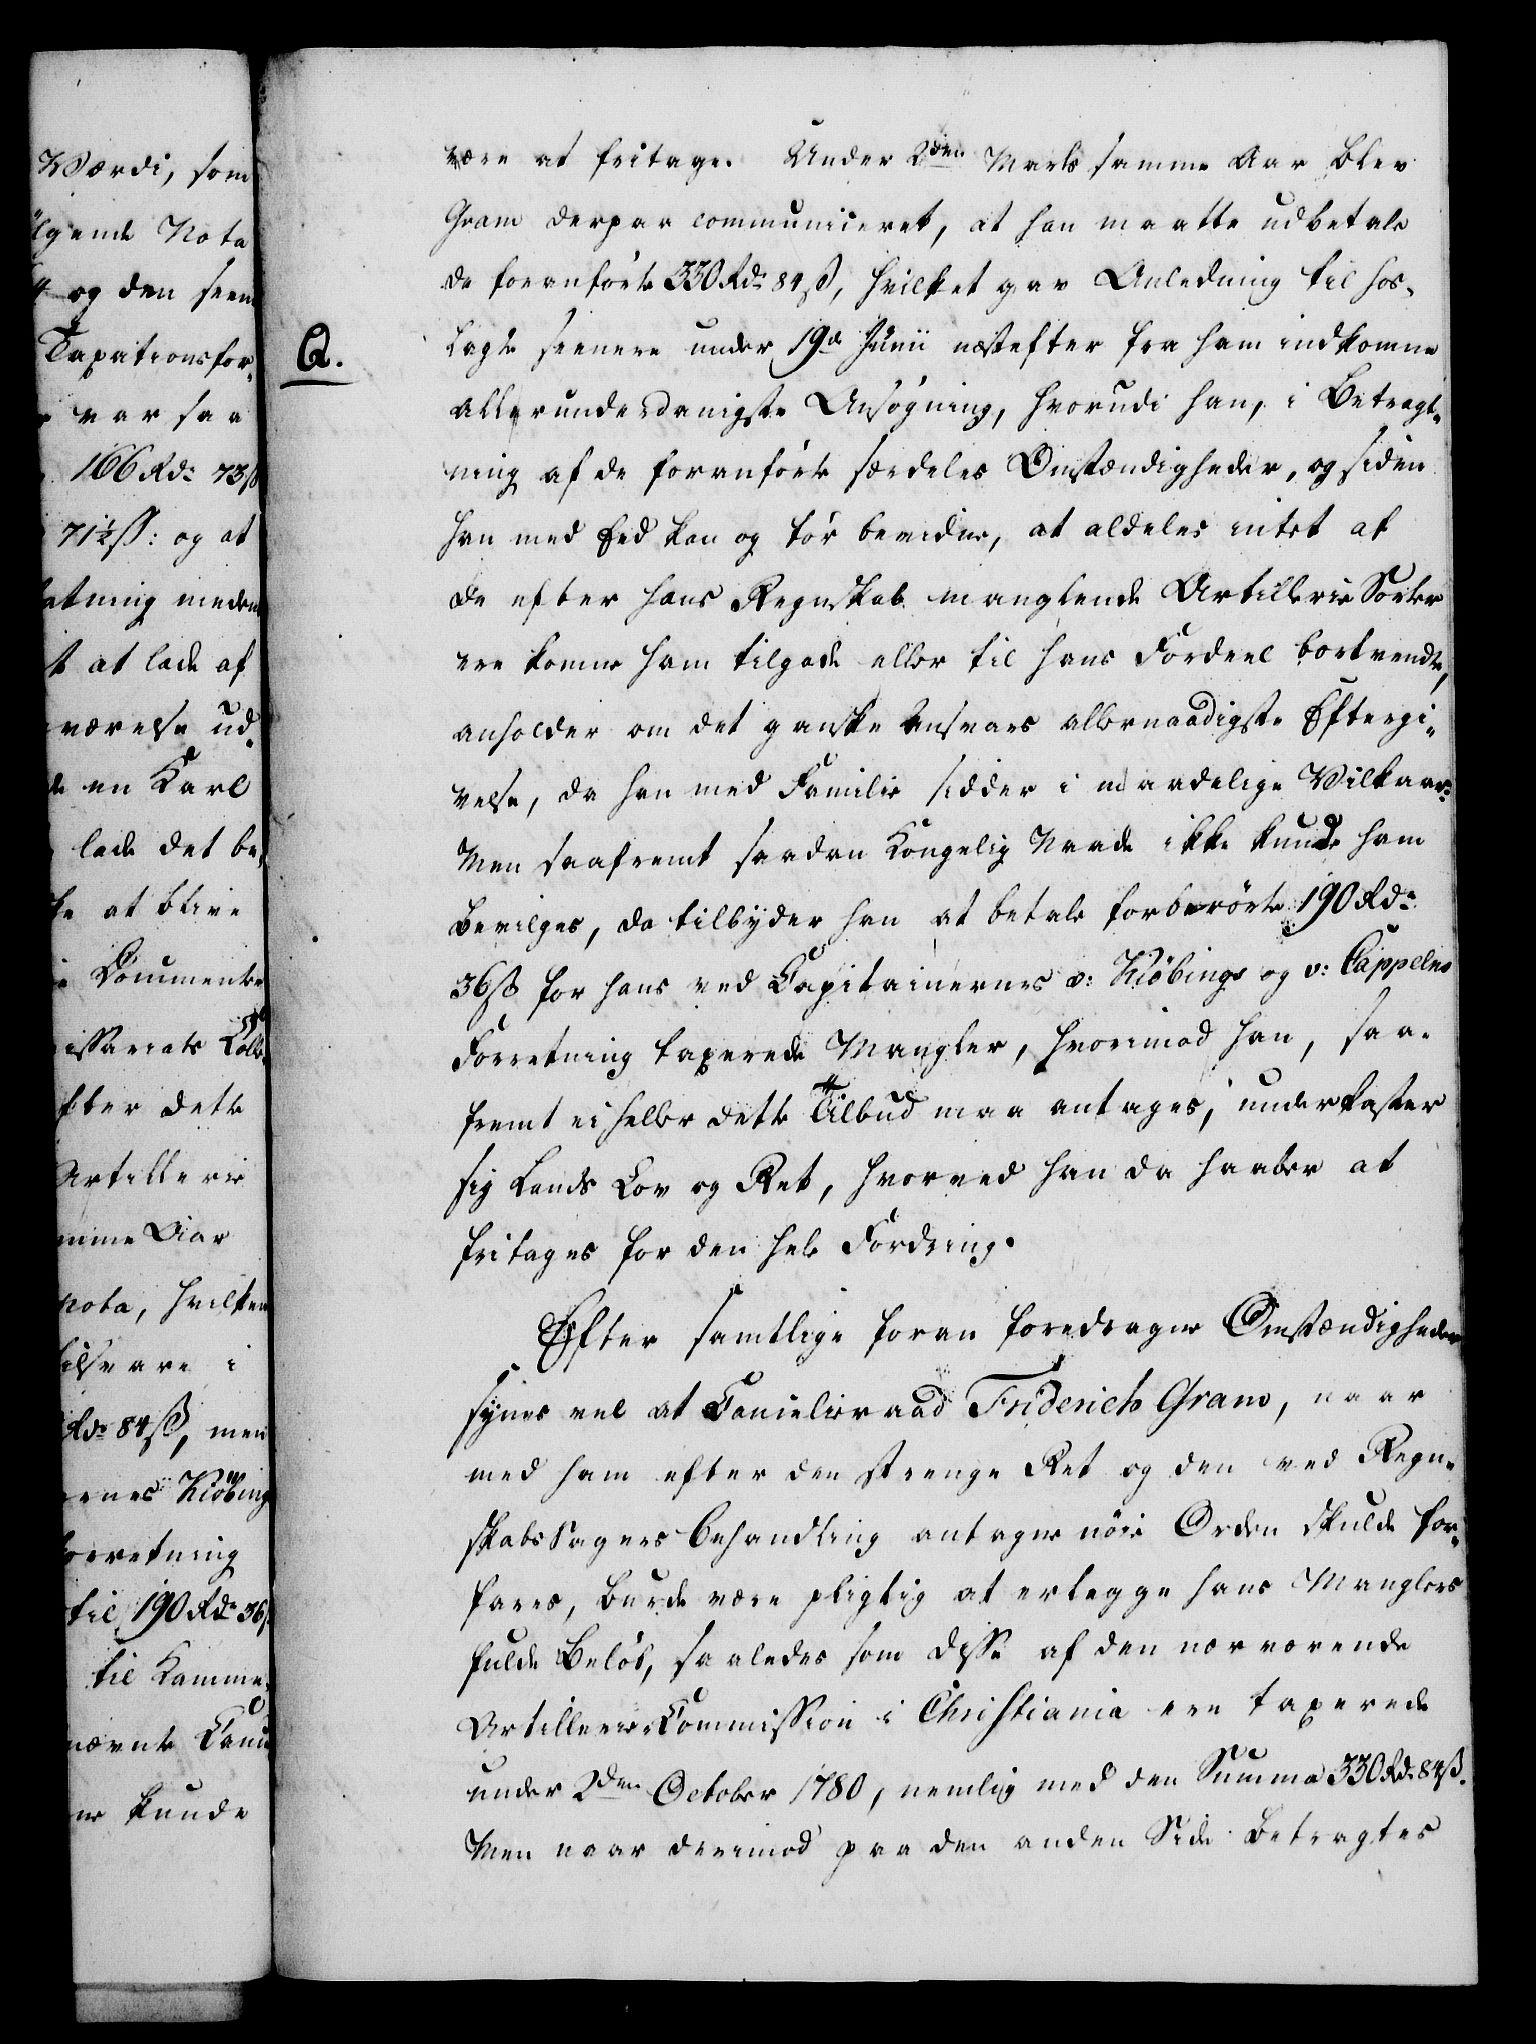 Værdi, som
lgende Nota
og den seen
Taxationsfor„
var saa
166 Rd: 73ß
71½ß: og at
etning meden
t at lade af
værelse ud„
de en Karl
lade det be„
ke at blive
Documenter
issariats Coll
fter dette
Artillerie
mme Aar
nota, hvilken
tilsvare i
Rd: 84ß, men
ernes Kiöbing
orretning
til 190 Rd: 36ß
til Kamme„
nævnte Canc
er kunde
være at fritage. Under 2den Marts samme Aar blev
Gram derpaa communiceret, at han maatte udbetale
de foranförte 330 Rd: 84ß, hvilket gav Anledning til hos„
Q.
lagte seenere under 19de Junii næstefter fra ham indkomne
allerunderdanigste Ansögning, hvorudi han, i Betragt„
ning af de foranförte særdeles Omstændigheder, og siden
han med Eed kan og tör bevidne, at aldeles intet af
de efter hans Regnskab manglende Artillerie Sorter
ere komne ham tilgode eller til hans Fordeel bortvendte,
anholder om det ganske Ansvars allernaadigste Eftergi„
velse, da han med Familie sidder i maadelige Vilkaar:
Men saafremt saadan Kongelig Naade ikke kunde ham
bevilges, da tilbyder han at betale forberörte 190 Rd:
36ß for hans ved Capitainernes v: Kiöbings og v: Cappelns
Forretning taxerede Mangler, hvorimod han, saa„
fremt ei heller dette Tilbud maa antages, underkaster
sig Lands Lov og Ret, hvorved han da haaber at
fritages for den hele Fordring.
Efter samtlige foran foredragne Omstændigheder
synes vel at Cancelieraad Friderich Gram, naar
med ham efter den strenge Ret og den ved Regn„
skabs Sagers Behandling antagne nöie Orden skulde for„
fares, burde være pligtig at erlegge hans Manglers
fulde Belöb, saaledes som disse af den nærværende
Artillerie Commission i Christiania ere taxerede
under 2den October 1780, nemlig med den Summa 330 Rd: 84ß.
Men naar derimod paa den anden Side betragtes